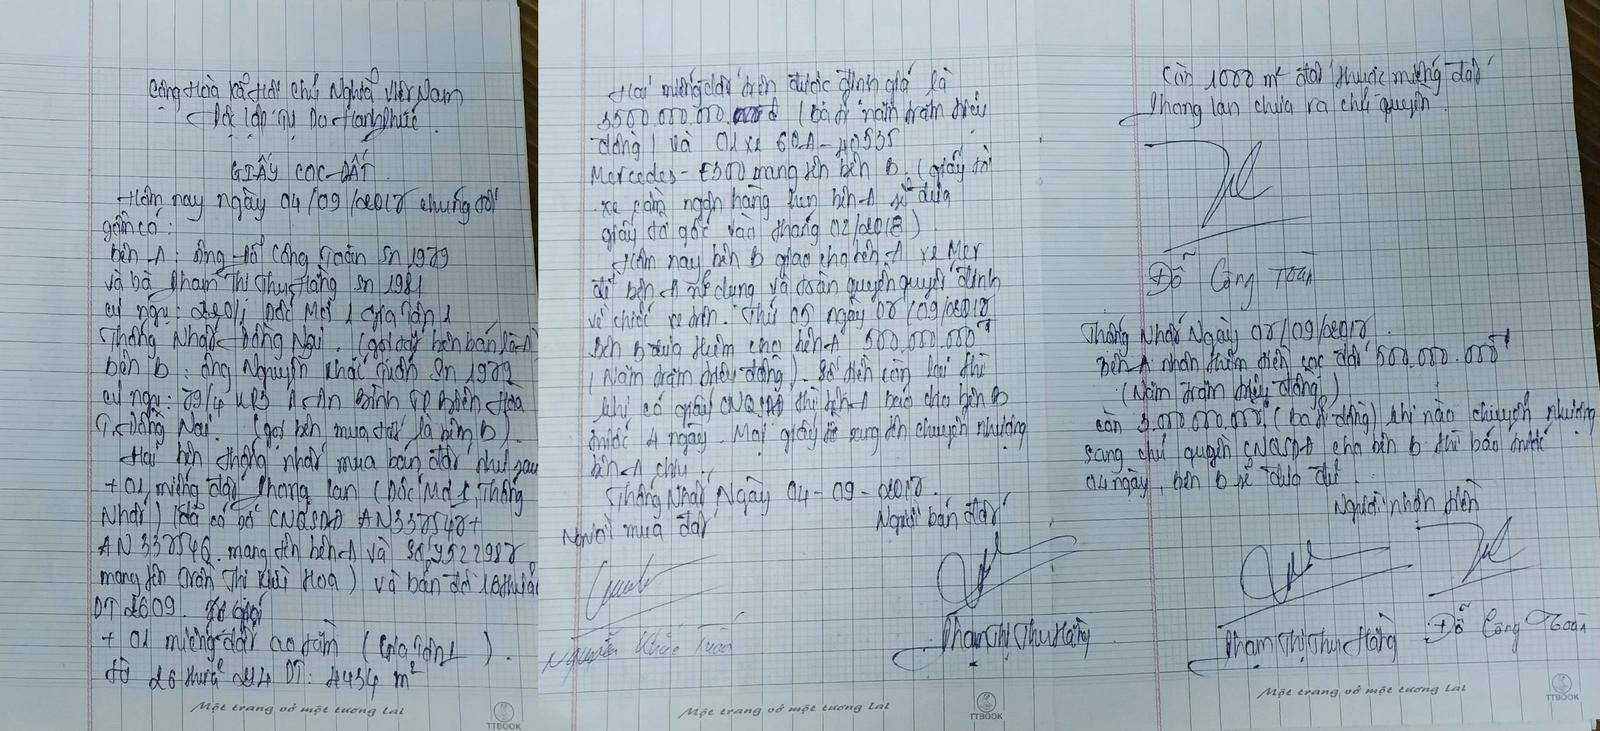 Cộng Hoà Xã Hội Chủ Nghĩa Việt Nam
Độc lập Tự Do Hạnh Phúc.
GIẤY CỌC ĐẤT.
Hôm nay ngày 04/09/2017 chúng tôi
gồm có:
bên A: ông Đỗ Công Toàn Sn 1979
và bà Phạm Thị Thu Hằng Sn 1981
cư ngụ: Dốc Mơ 1 Gia Tân 1
Thống Nhất Đồng Nai. (gọi bên bán là A)
bên B: ông Nguyễn Khắc Tuấn Sn 1979
cư ngụ: 79/4 KP3 An Bình TP Biên Hoà
T. Đồng Nai. (gọi bên mua đất là bên B).
Hai bên thống nhất mua bán đất như sau
+ 01 miếng đất Phong lan (Dốc Mơ 1, Thống
Nhất) (đã có sổ CNQSDĐ AN337547+
AN 337546. mang tên bên A và
mang tên Trần Thị Hoa) và bản đồ thửa
DT 2609.
+ 01 miếng đất ao tằm (Gia Tân 1).
tờ 26 thửa 214 DT: 4434 m²
Một trang vở một tương lai
TTBOOK
Hai miếng đất trên được định giá là
3500.000.000 đ (ba tỉ năm trăm triệu
đồng) và 01 xe 60A-
Mercedes - E300 mang tên bên B. (giấy tờ
xe còn ngân hàng bên A sẽ đưa
giấy tờ gốc vào tháng 02/2018)
Hôm nay bên B giao cho bên A xe Mer
để bên A sử dụng và toàn quyền quyết định
về chiếc xe trên. ngày 07/09/2017
bên B đưa thêm cho bên A 500.000.000đ
(Năm trăm triệu đồng). Số tiền còn lại thì
khi có giấy CNQSDĐ thì bên A báo cho bên B
trước 4 ngày. Mọi giấy tờ sang tên chuyển nhượng
bên A chịu.
Thống Nhất, Ngày 04-09-2017.
Người mua đất
Người bán đất
Nguyễn Khắc Tuấn
Phạm Thị Thu Hằng
Một trang vở một tương lai
TTBOOK
Còn 1000 m² đất thuộc miếng đất
Phong lan chưa ra chủ quyền.
Đỗ Công Toàn
Thống Nhất Ngày 07/09/2017.
Bên A nhận thêm tiền cọc đất 500.000.000đ
(Năm trăm triệu đồng)
còn 3.000.000.000đ (ba tỉ đồng) khi nào chuyển nhượng
sang chủ quyền CNQSDĐ cho bên B thì báo trước
04 ngày, bên B sẽ đưa đủ.
Người nhận tiền
Phạm Thị Thu Hằng
Đỗ Công Toàn
Một trang vở một tương lai
TTBOOK